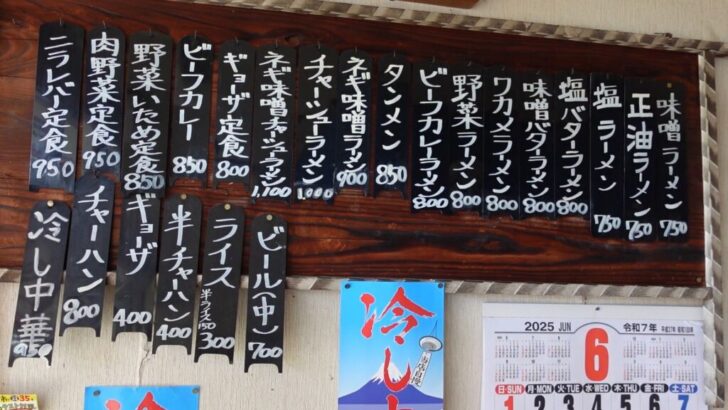 味噌ラーメン 750
正油ラーメン 750
塩ラーメン 750
塩バターラーメン 800
味噌バターラーメン 800
ワカメラーメン 800
野菜ラーメン 800
ビーフカレーラーメン 800
タンメン 850
ネギ味噌ラーメン 900
チャーシューラーメン 1,000
ネギ味噌チャシューラーメン 1,100
ギョーザ定食 800
ビーフカレー 850
野菜いため定食 850
肉野菜定食 950
ニラレバー定食 950
ビール(中) 700
ライス 300
半ライス 150
半チャーハン 400
ギョーザ 400
チャーハン 800
冷し中華 950
冷し
冷
2025 JUN 6 令和7年
日・SUN 月・MON 火・TUE 水・WED 木・THU 金・FRI 土・SAT
1 2 3 4 5 6 7